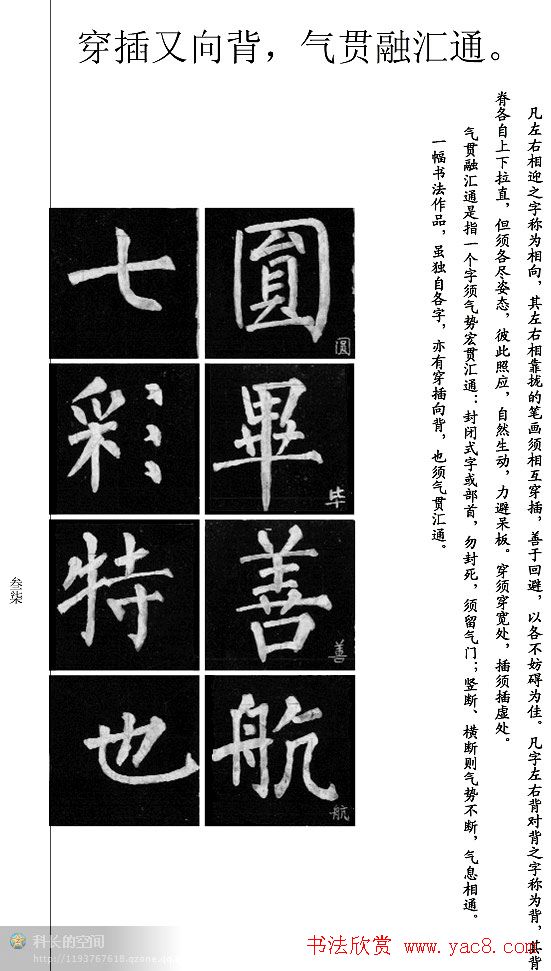 穿插又向背，气贯融汇通。
凡左右相迎之字称为相向，其左右相靠拢的笔画须相互穿插，善于回避，以各不妨碍为佳。凡字左右背对背之字称为背，其背
脊各自上下拉直，但须各尽姿态，彼此照应，自然生动，力避呆板。穿须穿宽处，插须插虚处。
气贯融汇通是指一个字须气势宏贯汇通：封闭式字或部首，勿封死，须留气门；竖断、横断则气势不断，气息相通。
一幅书法作品，虽独自各字，亦有穿插向背，也须气贯汇通。
圓
圆
畢
毕
善
善
航
航
七
彩
特
也
叁柒
科长的空间
http://1193767618.qzone.qq.
书法欣赏 www.yac8.com